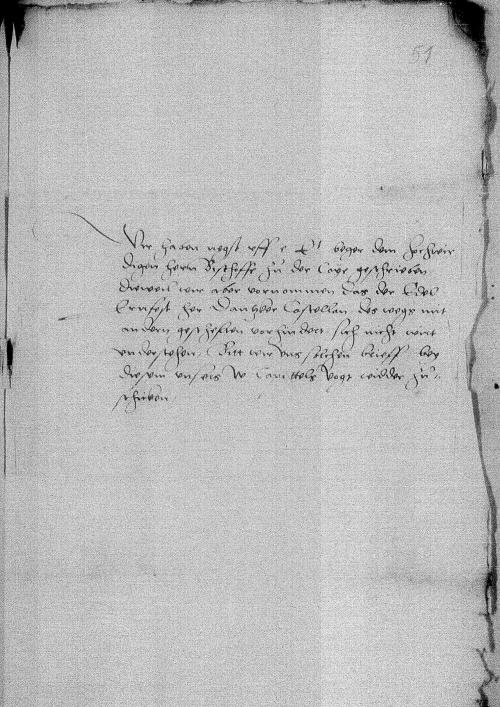 51
Wir haben negst uff e k begar dem hochwir
digen hern Bischoffe zu der Coye geschrieben
dieweil wir aber vornommen das der Edel
Ernfest her Dantzker Castellan des wegs mit
andern geschefften vorhindert sich nicht wirt
understehen, Bitt wir uns solchen brieff bey
diesem unsers Capittels Vogt widder zu
schicken